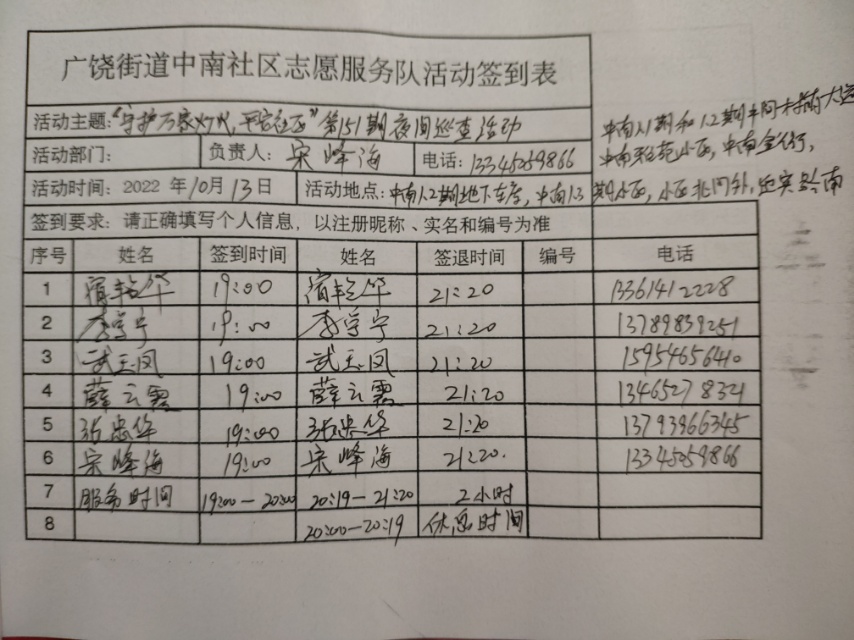 广饶街道中南社区志愿服务队活动签到表
活动主题:“守护万家灯火,平安社区”第151期夜间巡查活动
活动部门: 负责人: 宋峰海 电话: 13345059866
活动时间: 2022 年10月13日 活动地点: 中南1.2期地下车库,中南1.3期小区,小区北门外,
中南1.1期和1.2期车间
中南雅苑小区,中南
签到要求: 请正确填写个人信息,以注册昵称、实名和编号为准
序号 姓名 签到时间 姓名 签退时间 编号 电话
1 19:00 21:20 13361412228
2 李学宁 19:00 李学宁 21:20 13789839251
3 武玉凤 19:00 武玉凤 21:20 15954656410
4 薛云霞 19:00 薛云霞 21:20 13465278321
5 张忠华 19:00 张忠华 21:20 13793966345
6 宋峰海 19:00 宋峰海 21:20. 13345059866
7 服务时间 19:00-20:00 20:19-21:20 2小时
8 20:00-20:19 休息时间